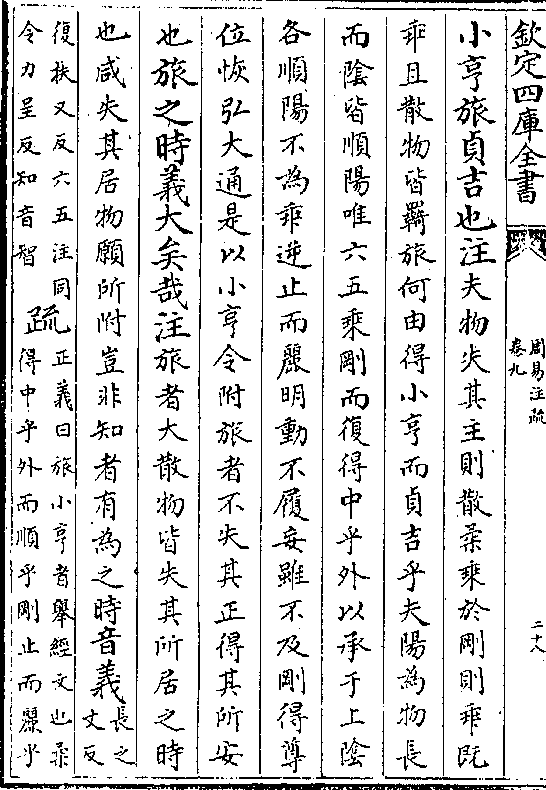 欽定四庫全書
周易注疏
卷九
二十八
小亨旅貞吉也注夫物失其主則散柔乘於剛則乖既
乖且散物皆羇旅何由得小亨而貞吉乎夫陽為物長
而陰皆順陽唯六五乘剛而復得中乎外以承于上陰
各順陽不為乖逆止而麗明動不履妄雖不及剛得尊
位恢弘大通是以小亨令附旅者不失其正得其所安
也旅之時義大矣哉注旅者大散物皆失其所居之時
也咸失其居物願所附豈非知者有為之時音義長之
丈反
復扶又反六五注同
令力呈反知音智
疏正義曰旅小亨者舉經文也柔
得中乎外而順乎剛止而麗乎